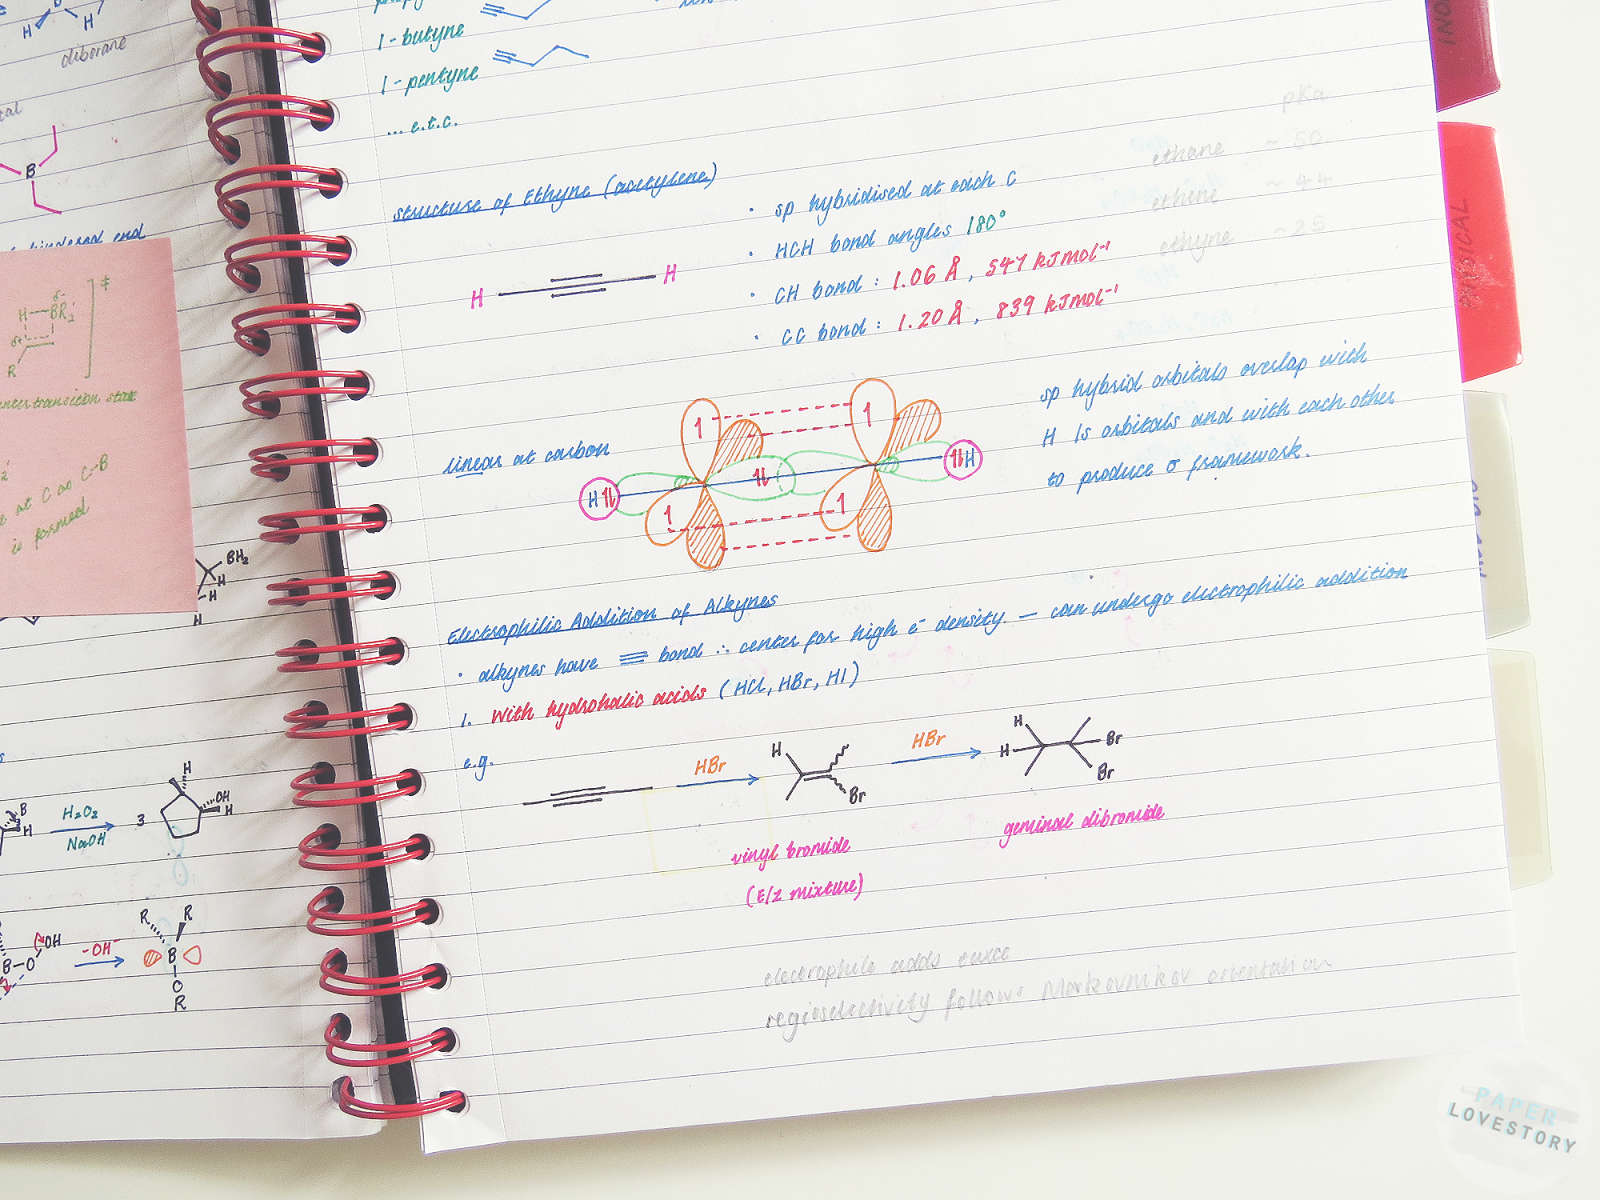 H
H
diborane
B
H BR₂'
δ-
δ+
R
‡
is formed
BH₂
H
H
H
H
B
H
H₂O₂
NaOH
3
OH
H
R R
B-O
OH
-OH⁻
B
O
R
1-butyne
1-pentyne
... e.t.c.
pKa
ethane ~50
ethene ~44
ethyne ~25
Structure of Ethyne (acetylene)
H H
· sp hybridised at each C
· HCH bond angles 180°
· CH bond : 1.06 Å, 547 kJmol⁻¹
· CC bond : 1.20 Å, 839 kJmol⁻¹
linear at carbon
H 1 1 1 1 H
sp hybrid orbitals overlap with
H 1s orbitals and with each other
to produce σ framework.
Electrophilic Addition of Alkynes
· alkynes have ≡ bond ∴ center for high e⁻ density — can undergo electrophilic addition
1. With hydrohalic acids (HCl, HBr, HI)
e.g.
HBr
H
Br
HBr
H
H
Br
Br
vinyl bromide
(E/Z mixture)
geminal dibromide
electrophile adds twice
regioselectivity follows Markovnikov orientation
PAPER
LOVESTORY